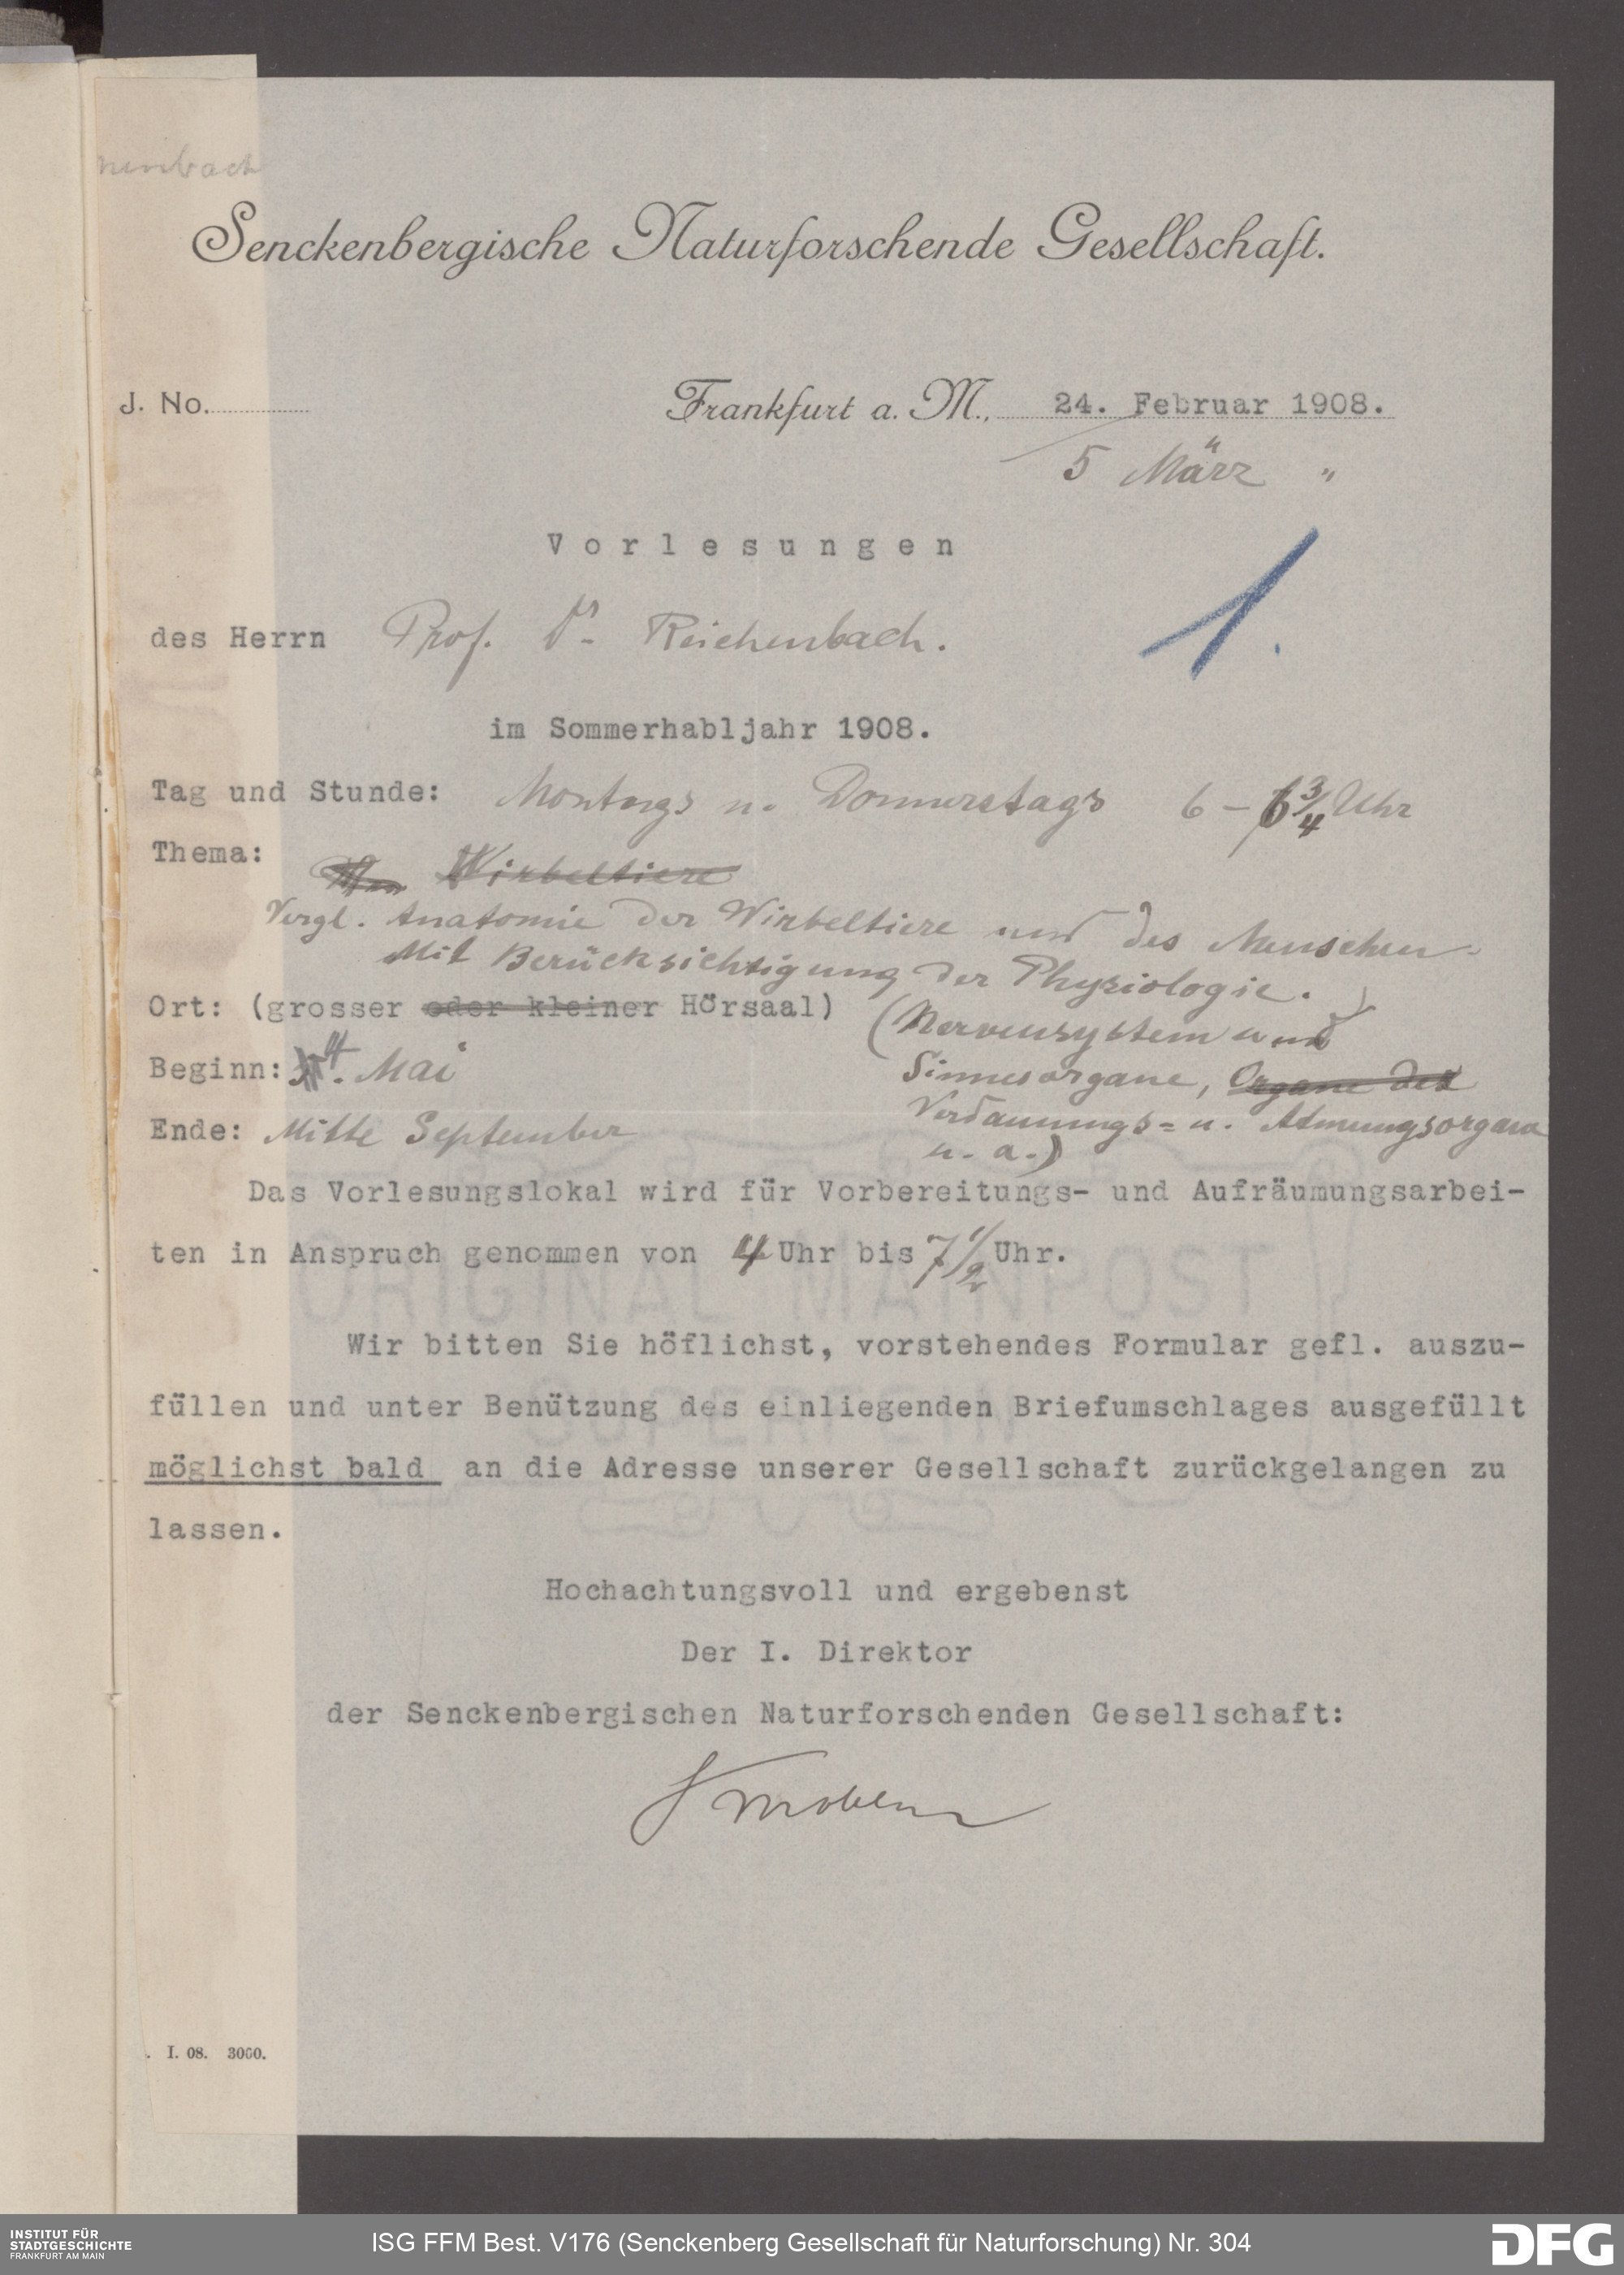 Senckenbergische Naturforschende Gesellschaft.
J. No.
Frankfurt a. M., 24. Februar 1908.
5 März "
Vorlesungen
1.
des Herrn Prof. Dr. Reichenbach.
im Sommerhabljahr 1908.
Tag und Stunde: Montags u. Donnerstags 6 – 6 3/4 Uhr
Thema:
Wirbeltiere
Vergl. Anatomie der Wirbeltiere und des Menschen.
Mit Berücksichtigung der Physiologie.
Ort: (grosser oder kleiner Hörsaal)
(Nervensystem und
Beginn: 4. Mai
Sinnesorgane, Organe der
Verdauungs= u. Atmungsorgane
Ende: Mitte September
u. a.)
Das Vorlesungslokal wird für Vorbereitungs- und Aufräumungsarbei-
ten in Anspruch genommen von 4 Uhr bis 7 1/2 Uhr.
ORIGINAL MAINPOST
Wir bitten Sie höflichst, vorstehendes Formular gefl. auszu-
füllen und unter Benützung des einliegenden Briefumschlages ausgefüllt
SUPERFEIN
möglichst bald an die Adresse unserer Gesellschaft zurückgelangen zu
lassen.
Hochachtungsvoll und ergebenst
Der I. Direktor
der Senckenbergischen Naturforschenden Gesellschaft:
I. 08. 3000.
INSTITUT FÜR
STADTGESCHICHTE
FRANKFURT AM MAIN
ISG FFM Best. V176 (Senckenberg Gesellschaft für Naturforschung) Nr. 304
DFG